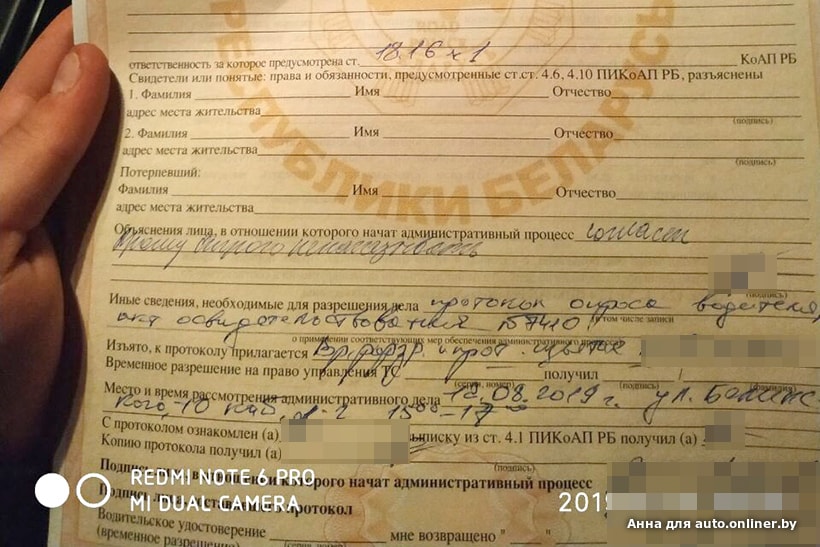 РЕСПУБЛИКИ БЕЛАРУСЬ
ответственность за которое предусмотрена ст. 18.16 ч 1 КоАП РБ
Свидетели или понятые: права и обязанности, предусмотренные ст.ст. 4.6, 4.10 ПИКоАП РБ, разъяснены
1. Фамилия Имя Отчество
адрес места жительства
(подпись)
2. Фамилия Имя Отчество
адрес места жительства
(подпись)
Потерпевший:
Фамилия Имя Отчество
адрес места жительства
Объяснения лица, в отношении которого начат административный процесс согласен
Прошу строго не наказывать
(подпись)
Иные сведения, необходимые для разрешения дела протокол опроса водителя,
в том числе записи
акт освидетельствования №7410
о применении соответствующих мер обеспечения административного процесса
Изъято, к протоколу прилагается Вр. разр. и прот. изъятия
Временное разрешение на право управления ТС получил /
(серия, номер) (подпись) (фамилия)
Место и время рассмотрения административного дела 12.08.2019 г. ул.
10 каб, 15⁰⁰-17⁰⁰
С протоколом ознакомлен (а) выписку из ст. 4.1 ПИКоАП РБ получил (а)
Копию протокола получил (а)
(подпись)
Подпись лица, в отношении которого начат административный процесс
Подпись протокол
Водительское удостоверение мне возвращено " "
(временное разрешение) (серия, номер)
REDMI NOTE 6 PRO
MI DUAL CAMERA
2019
Анна для auto.onliner.by